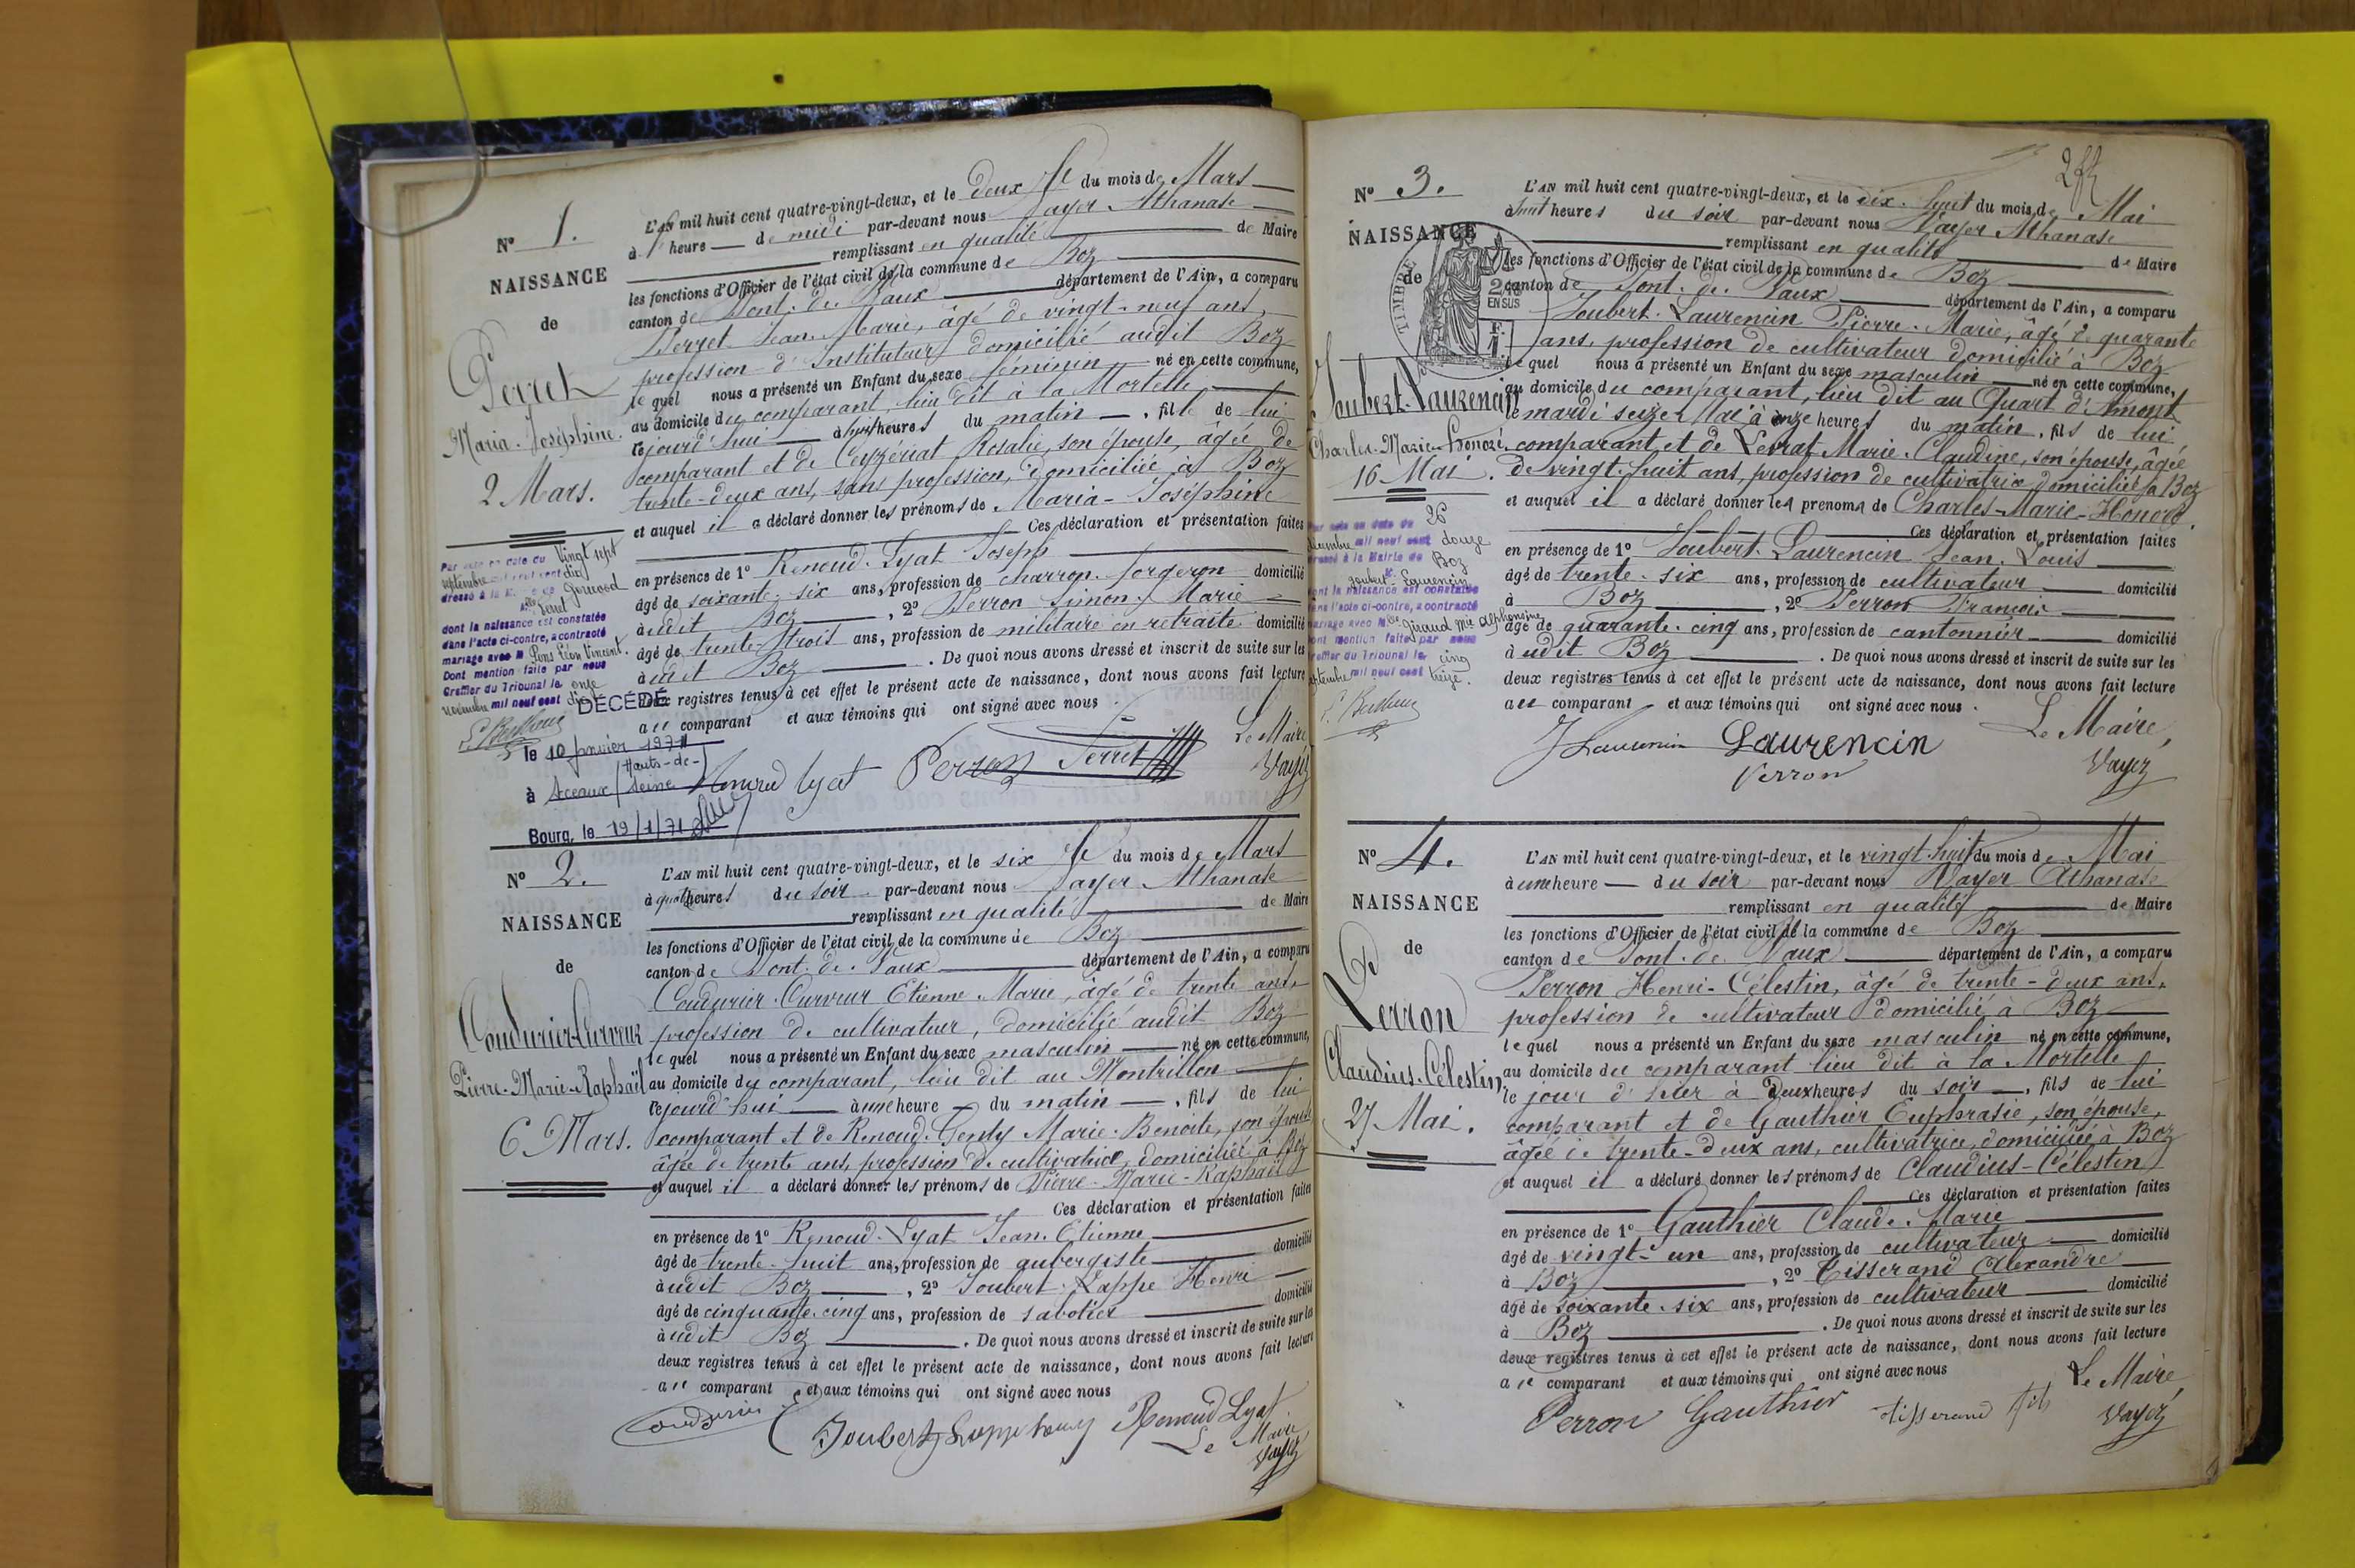 N° 1.
NAISSANCE
de
Perret
Maria-Joséphine.
2 Mars.
L'AN mil huit cent quatre-vingt-deux, et le deux du mois de Mars
à 1 heure de midi par-devant nous Vayer Athanase
remplissant en qualité de Maire
les fonctions d'Officier de l'état civil de la commune de Boz
canton de Pont-de-Vaux département de l'Ain, a comparu
Perret Jean-Marie, âgé de vingt-neuf ans,
profession d'Instituteur domicilié audit Boz
lequel nous a présenté un Enfant du sexe féminin né en cette commune,
au domicile du comparant, lieu dit à la Mortelle
cejourd'hui à heures du matin, fille de lui
comparant et de Ceyzériat Rosalie, son épouse, âgée de
trente-deux ans, sans profession, domiciliée à Boz
et auquel il a déclaré donner les prénoms de Maria-Joséphine
Ces déclaration et présentation faites
en présence de 1° Renoud-Lyat Joseph
âgé de soixante-six ans, profession de charron-forgeron domicilié
audit Boz, 2° Perron Simon-Marie
âgé de trente-trois ans, profession de militaire en retraite domicilié
audit Boz. De quoi nous avons dressé et inscrit de suite sur les
deux registres tenus à cet effet le présent acte de naissance, dont nous avons fait lecture
au comparant et aux témoins qui ont signé avec nous.
Le Maire
Renoud Lyat Perron Perret Vayer
Par acte en date du Vingt sept
septembre mil neuf cent dix
dressé à la Mairie de
Melle Perret
dont la naissance est constatée
dans l'acte ci-contre, a contracté
mariage avec M. Pons Léon Vincent.
Dont mention faite par nous
Greffier du Tribunal le onze
novembre mil neuf cent dix
DÉCÉDÉ
le 10 janvier 1971
à Sceaux (Hauts-de-Seine)
Bourg, le 19/1/71
N° 2.
NAISSANCE
de
Coudurier-Curveur
Pierre-Marie-Raphaël
6 Mars.
L'AN mil huit cent quatre-vingt-deux, et le six du mois de Mars
à quatre heures du soir par-devant nous Vayer Athanase
remplissant en qualité de Maire
les fonctions d'Officier de l'état civil de la commune de Boz
canton de Pont-de-Vaux département de l'Ain, a comparu
Coudurier-Curveur Etienne-Marie, âgé de trente ans,
profession de cultivateur, domicilié audit Boz
lequel nous a présenté un Enfant du sexe masculin né en cette commune,
au domicile du comparant, lieu dit au Montrillon
cejourd'hui à une heure du matin, fils de lui
comparant et de Renoud-Genty Marie-Benoite, son épouse
âgée de trente ans, profession de cultivatrice, domiciliée à Boz
et auquel il a déclaré donner les prénoms de Pierre-Marie-Raphaël
Ces déclaration et présentation faites
en présence de 1° Renoud-Lyat Jean-Etienne
âgé de trente-huit ans, profession de aubergiste domicilié
audit Boz, 2° Joubert-Lappe Henri
âgé de cinquante-cinq ans, profession de sabotier domicilié
audit Boz. De quoi nous avons dressé et inscrit de suite sur les
deux registres tenus à cet effet le présent acte de naissance, dont nous avons fait lecture
au comparant et aux témoins qui ont signé avec nous
Coudurier Joubert Lappe henry Renoud Lyat
Le Maire
Vayer
N° 3.
NAISSANCE
de
TIMBRE
2/10
EN SUS
Joubert-Laurencin
Charles-Marie-Honoré.
16 Mai.
L'AN mil huit cent quatre-vingt-deux, et le dix-huit du mois de Mai
à huit heures du soir par-devant nous Vayer Athanase
remplissant en qualité de Maire
les fonctions d'Officier de l'état civil de la commune de Boz
canton de Pont-de-Vaux département de l'Ain, a comparu
Joubert-Laurencin Pierre-Marie, âgé de quarante
ans, profession de cultivateur domicilié à Boz
lequel nous a présenté un Enfant du sexe masculin né en cette commune,
au domicile du comparant, lieu dit au Quart d'Amont
le mardi seize Mai à onze heures du matin, fils de lui
comparant et de Levrat Marie-Claudine, son épouse, âgée
de vingt-huit ans, profession de cultivatrice domiciliée à Boz
et auquel il a déclaré donner les prénoms de Charles-Marie-Honoré.
Ces déclaration et présentation faites
en présence de 1° Joubert-Laurencin Jean-Louis
âgé de trente-six ans, profession de cultivateur domicilié
à Boz, 2° Perron François
âgé de quarante-cinq ans, profession de cantonnier domicilié
audit Boz. De quoi nous avons dressé et inscrit de suite sur les
deux registres tenus à cet effet le présent acte de naissance, dont nous avons fait lecture
au comparant et aux témoins qui ont signé avec nous.
Laurencin Le Maire,
Perron Vayer
Par acte en date du 26
mil neuf cent douze
dressé à la Mairie de Boz
M. Joubert-Laurencin
dont la naissance est constatée
dans l'acte ci-contre, a contracté
mariage avec Melle Giraud Mie Alphonsine
Dont mention faite par nous
Greffier du Tribunal le cinq
septembre mil neuf cent treize.
N° 4.
NAISSANCE
de
Perron
Claudius-Célestin,
27 Mai.
L'AN mil huit cent quatre-vingt-deux, et le vingt-huit du mois de Mai
à une heure du soir par-devant nous Vayer Athanase
remplissant en qualité de Maire
les fonctions d'Officier de l'état civil de la commune de Boz
canton de Pont-de-Vaux département de l'Ain, a comparu
Perron Henri-Célestin, âgé de trente-deux ans,
profession de cultivateur domicilié à Boz
lequel nous a présenté un Enfant du sexe masculin né en cette commune,
au domicile du comparant lieu dit à la Mortelle
le jour d'hier à Deux heures du soir, fils de lui
comparant et de Gauthier Euphrasie, son épouse,
âgée de trente-deux ans, cultivatrice, domiciliée à Boz
et auquel il a déclaré donner les prénoms de Claudius-Célestin
Ces déclaration et présentation faites
en présence de 1° Gauthier Claude-Marie
âgé de vingt-un ans, profession de cultivateur domicilié
à Boz, 2° Tisserand Alexandre
âgé de soixante-six ans, profession de cultivateur domicilié
à Boz. De quoi nous avons dressé et inscrit de suite sur les
deux registres tenus à cet effet le présent acte de naissance, dont nous avons fait lecture
au comparant et aux témoins qui ont signé avec nous
Le Maire,
Perron Gauthier tisserand Vayer